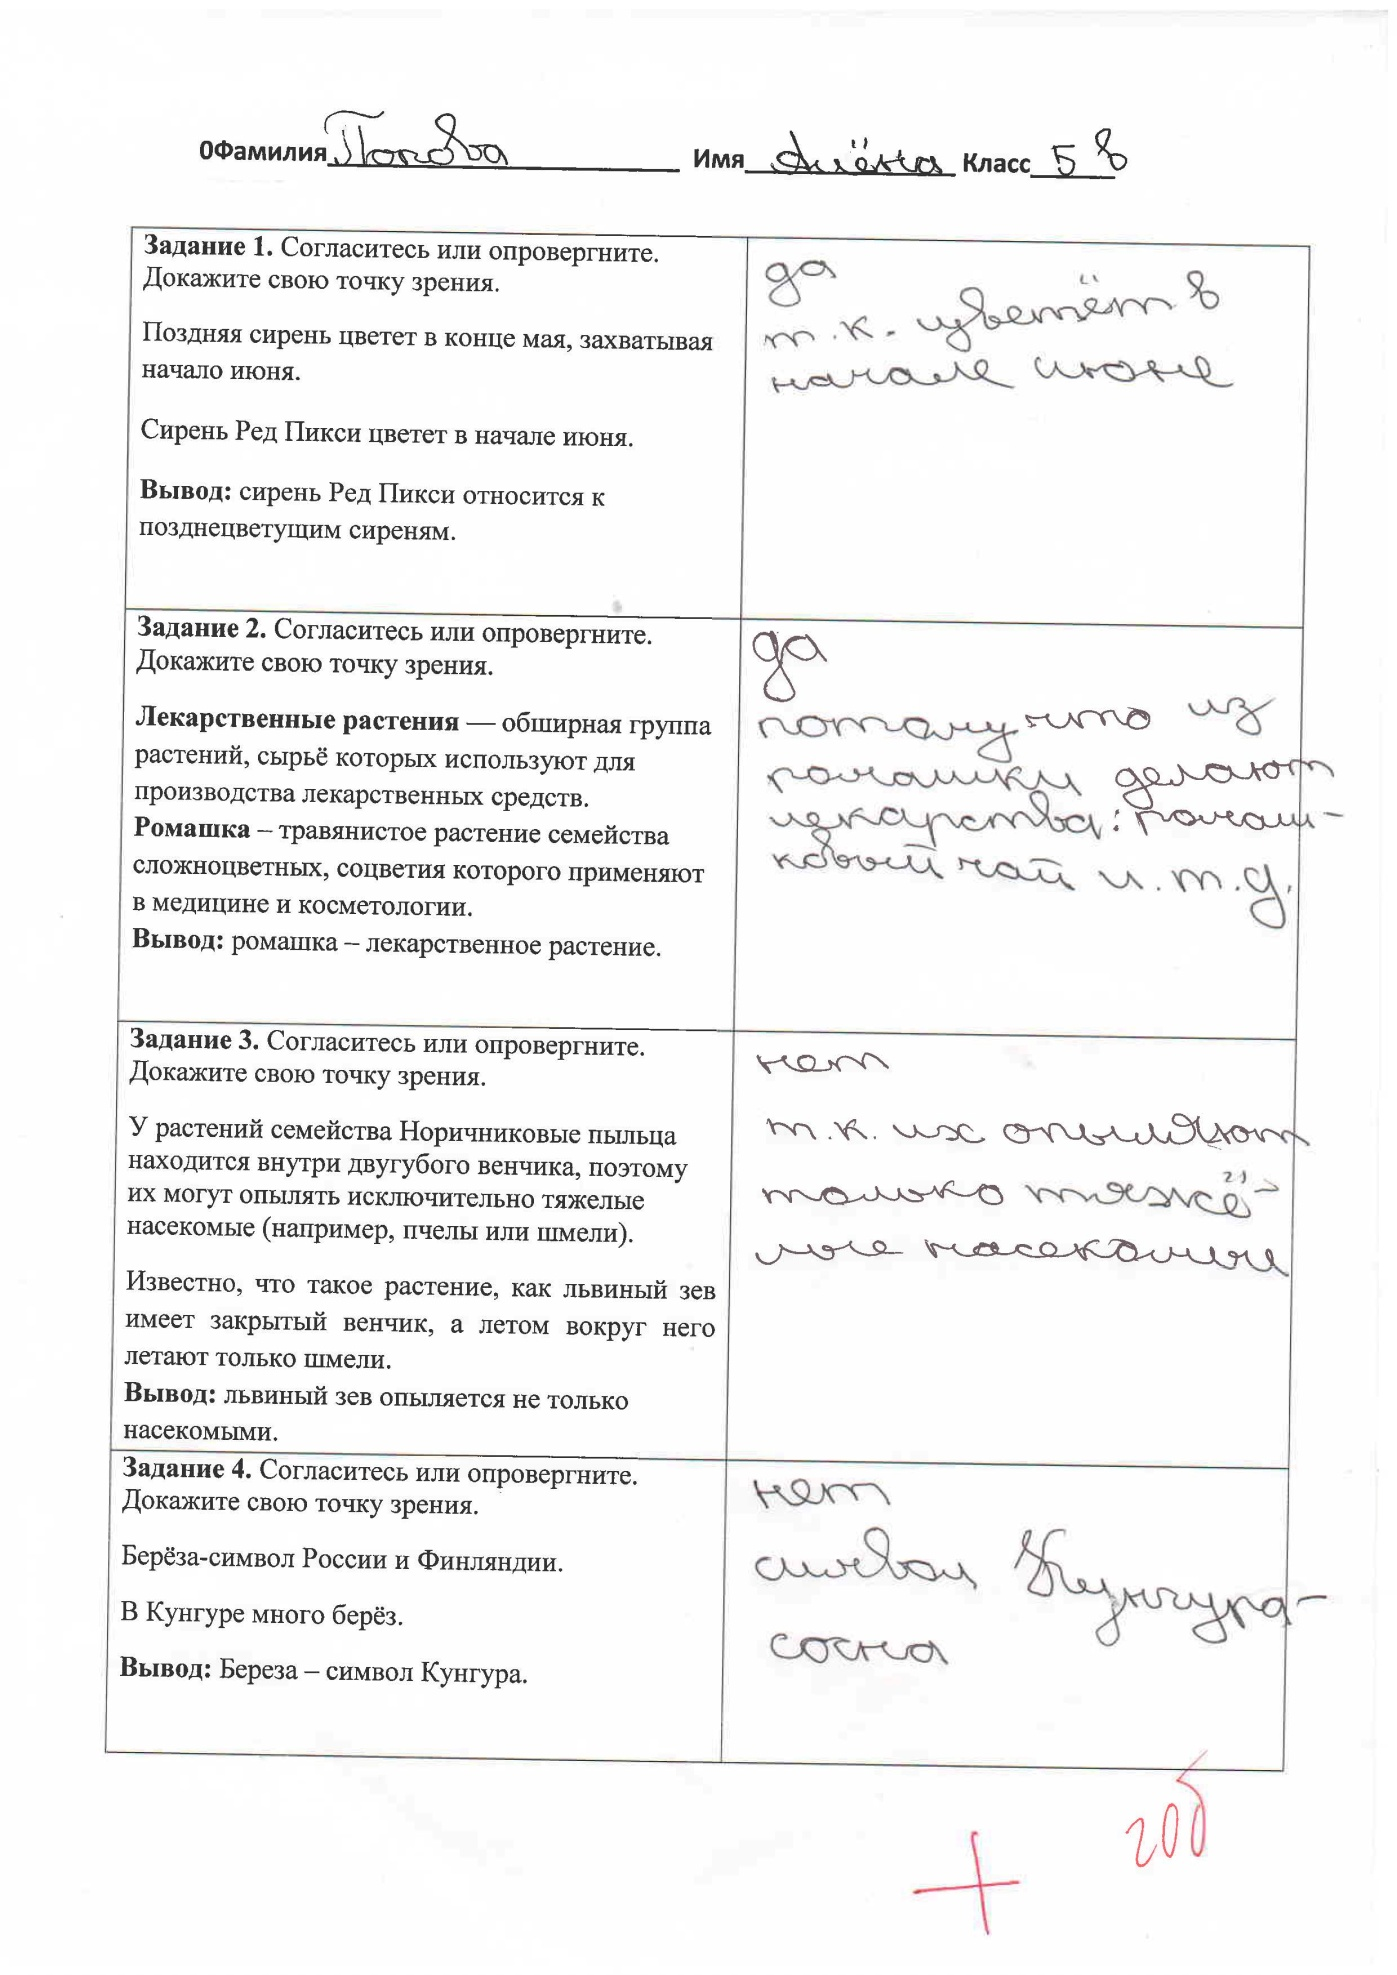 0Фамилия Попова Имя Алёна Класс 5 в
Задание 1. Согласитесь или опровергните.
Докажите свою точку зрения.
Поздняя сирень цветет в конце мая, захватывая
начало июня.
Сирень Ред Пикси цветет в начале июня.
Вывод: сирень Ред Пикси относится к
позднецветущим сиреням.
да
т.к. цветёт в
начале июне
Задание 2. Согласитесь или опровергните.
Докажите свою точку зрения.
Лекарственные растения — обширная группа
растений, сырьё которых используют для
производства лекарственных средств.
Ромашка – травянистое растение семейства
сложноцветных, соцветия которого применяют
в медицине и косметологии.
Вывод: ромашка – лекарственное растение.
да
потому-что из
ромашки делают
лекарства: ромаш-
ковый чай и.т.д.
Задание 3. Согласитесь или опровергните.
Докажите свою точку зрения.
У растений семейства Норичниковые пыльца
находится внутри двугубого венчика, поэтому
их могут опылять исключительно тяжелые
насекомые (например, пчелы или шмели).
Известно, что такое растение, как львиный зев
имеет закрытый венчик, а летом вокруг него
летают только шмели.
Вывод: львиный зев опыляется не только
насекомыми.
нет
т.к. их опыляют
только тяжё-
лые насекомые
Задание 4. Согласитесь или опровергните.
Докажите свою точку зрения.
Берёза-символ России и Финляндии.
В Кунгуре много берёз.
Вывод: Береза – символ Кунгура.
нет
символ Кунгура-
сосна
+ 20б